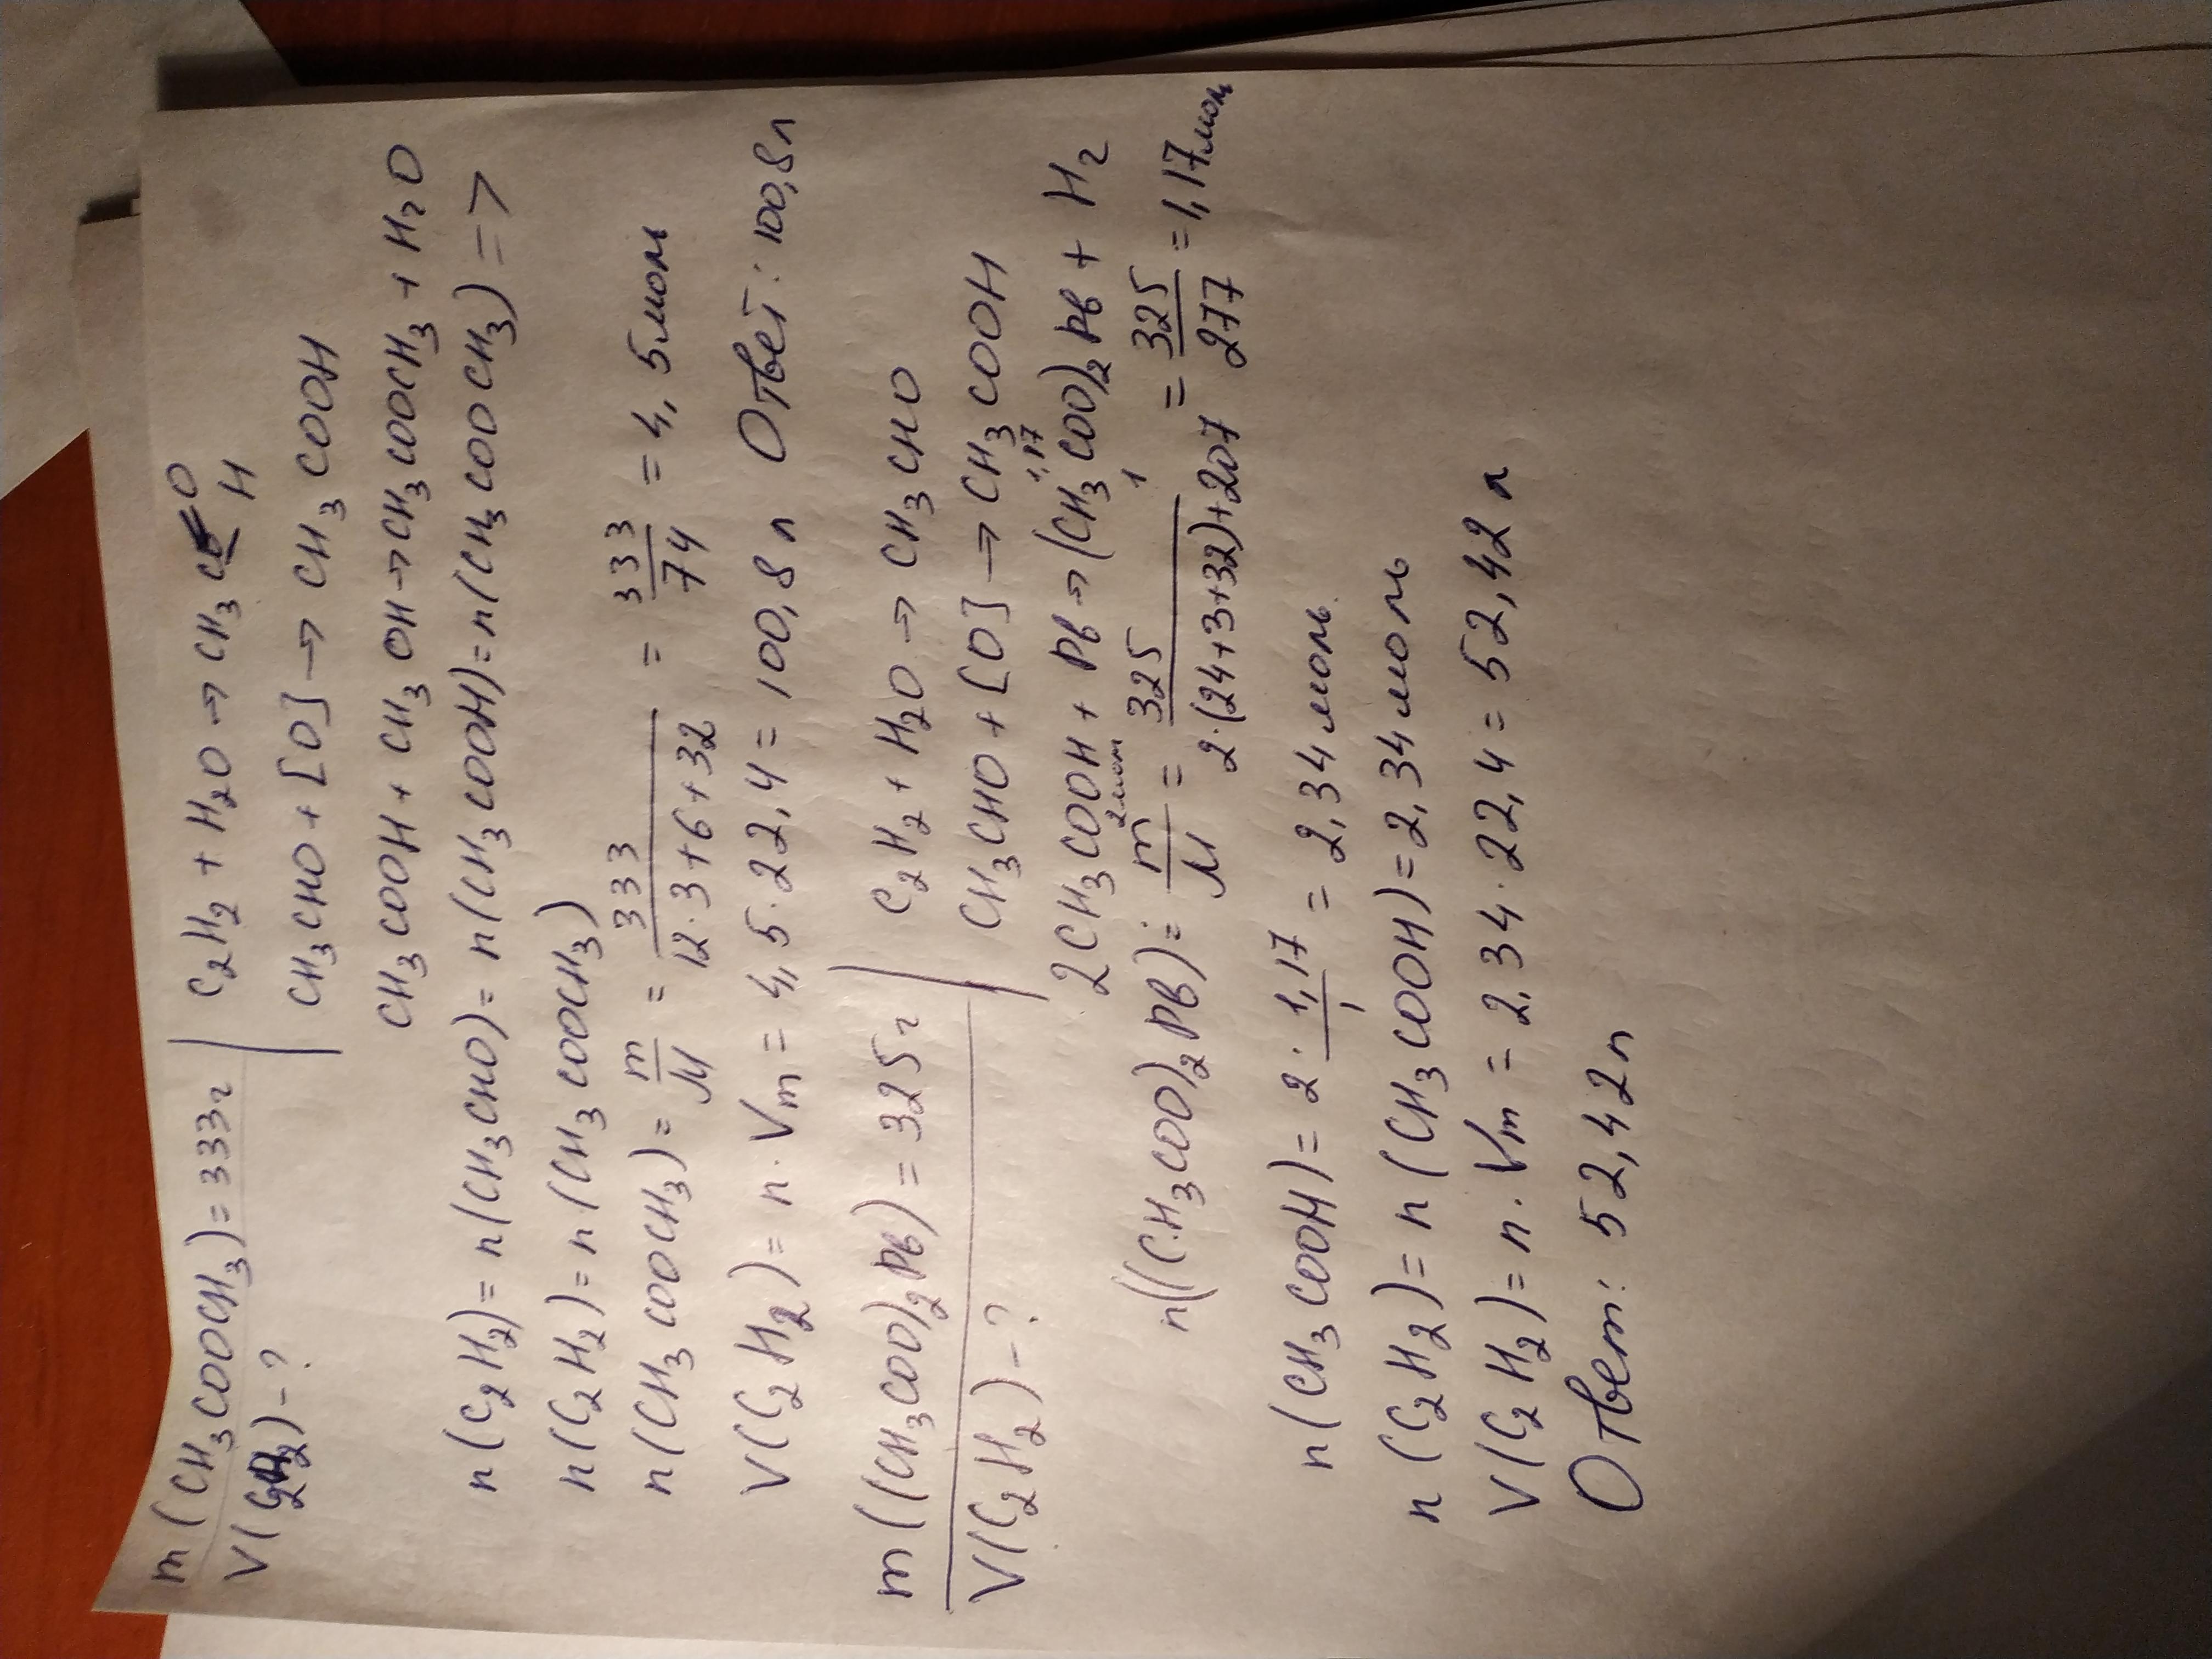 m(CH₃COOCH₃)=333г | C₂H₂ + H₂O → CH₃C=O H
V(C₂H₂)-? CH₃CHO + [O] → CH₃COOH
CH₃COOH + CH₃OH → CH₃COOCH₃ + H₂O
n(C₂H₂)= n(CH₃CHO)= n(CH₃COOH)= n(CH₃COOCH₃) =>
n(C₂H₂)= n(CH₃COOCH₃)
n(CH₃COOCH₃)= m/M = 333/12·3+6+32 = 333/74 = 4,5моль
V(C₂H₂)= n·Vm = 4,5·22,4 = 100,8л Ответ: 100,8л
m((CH₃COO)₂Pb) = 325г | C₂H₂ + H₂O → CH₃CHO
V(C₂H₂)-? CH₃CHO + [O] → CH₃COOH
2CH₃COOH + Pb → (CH₃COO)₂Pb + H₂
2моль 1,17 1
n((CH₃COO)₂Pb)= m/M = 325/2·(24+3+32)+207 = 325/277 = 1,17моль
n(CH₃COOH)= 2·1,17/1 = 2,34моль
n(C₂H₂)= n(CH₃COOH)=2,34моль
V(C₂H₂)= n·Vm = 2,34·22,4= 52,42л
Ответ: 52,42л